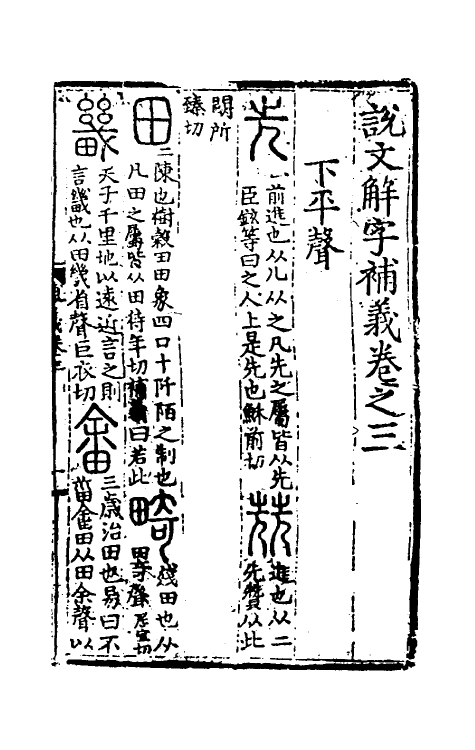 說文解字補義卷之三
下平聲
先 一前進也从儿从之凡先之屬皆从先
臣鉉等曰之人上是先也穌前切
兟 進也从二
先贊从此
闕所
臻切
田 二陳也樹穀曰田象四口十阡陌之制也
凡田之屬皆从田待年切補義曰若此
畸 殘田也从
田奇聲居宜切
畿 天子千里地以遠近言之則
言畿也从田幾省聲巨衣切
畬 三歲治田也易曰不
菑畬田从田余聲以